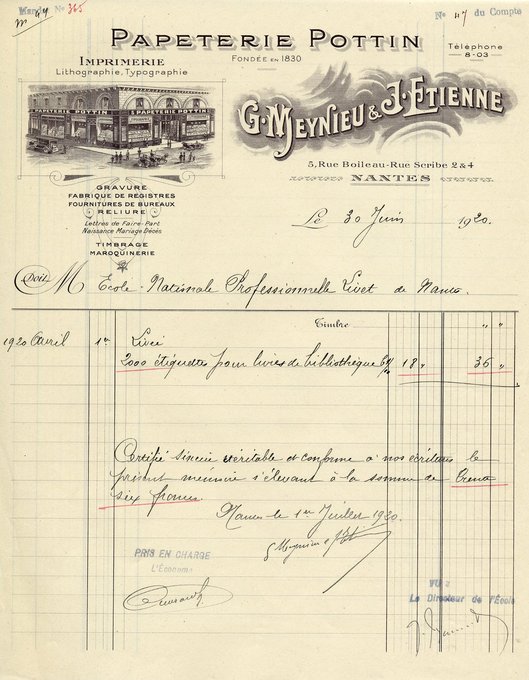 Mandat N° 365
N° 47 du Compte
PAPETERIE POTTIN
FONDÉE EN 1830
Téléphone
8-03
IMPRIMERIE
Lithographie, Typographie
PAPETERIE POTTIN
PAPETERIE POTTIN
G. MEYNIEU & J. ETIENNE
5, Rue Boileau-Rue Scribe 2 & 4
NANTES
GRAVURE
FABRIQUE DE REGISTRES
FOURNITURES DE BUREAUX
RELIURE
Lettres de Faire-Part
Naissance Mariage Décès
TIMBRAGE
MAROQUINERIE
Le 30 Juin 1920.
Doit M École Nationale Professionnelle Livet de Nantes
Timbre " "
1920 Avril 1er Livré
2000 étiquettes pour livres de bibliothèque 18 " 36 "
Certifié sincère véritable et conforme à nos écritures le
présent mémoire s'élevant à la somme de Trente
six francs.
Nantes le 1er Juillet 1920.
G Meynieu & J Etienne
PRIS EN CHARGE
L'Économe
VU :
Le Directeur de l'École